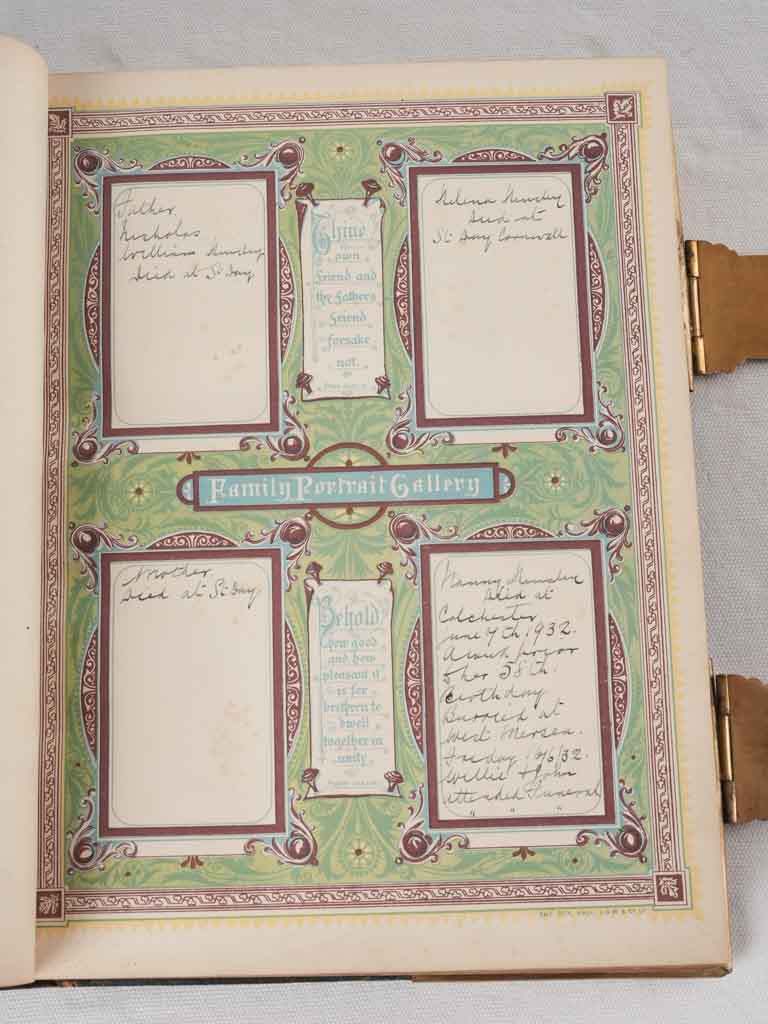 Father
Nicholas
William
Died at St Day
Thine
own
Friend and
the Fathers
Friend
forsake
not.
Helena
Died at
St Day Cornwall
Family Portrait Gallery
Mother
Died at St Day
Behold
how good
and how
pleasant it
is for
brethren to
dwell
together in
unity
Nanny
Died at
Colchester
June 7th 1932.
58th
Birthday
Burried at
West Mersea.
Friday 10/6/32.
Willie + John
attended Funeral
" " "